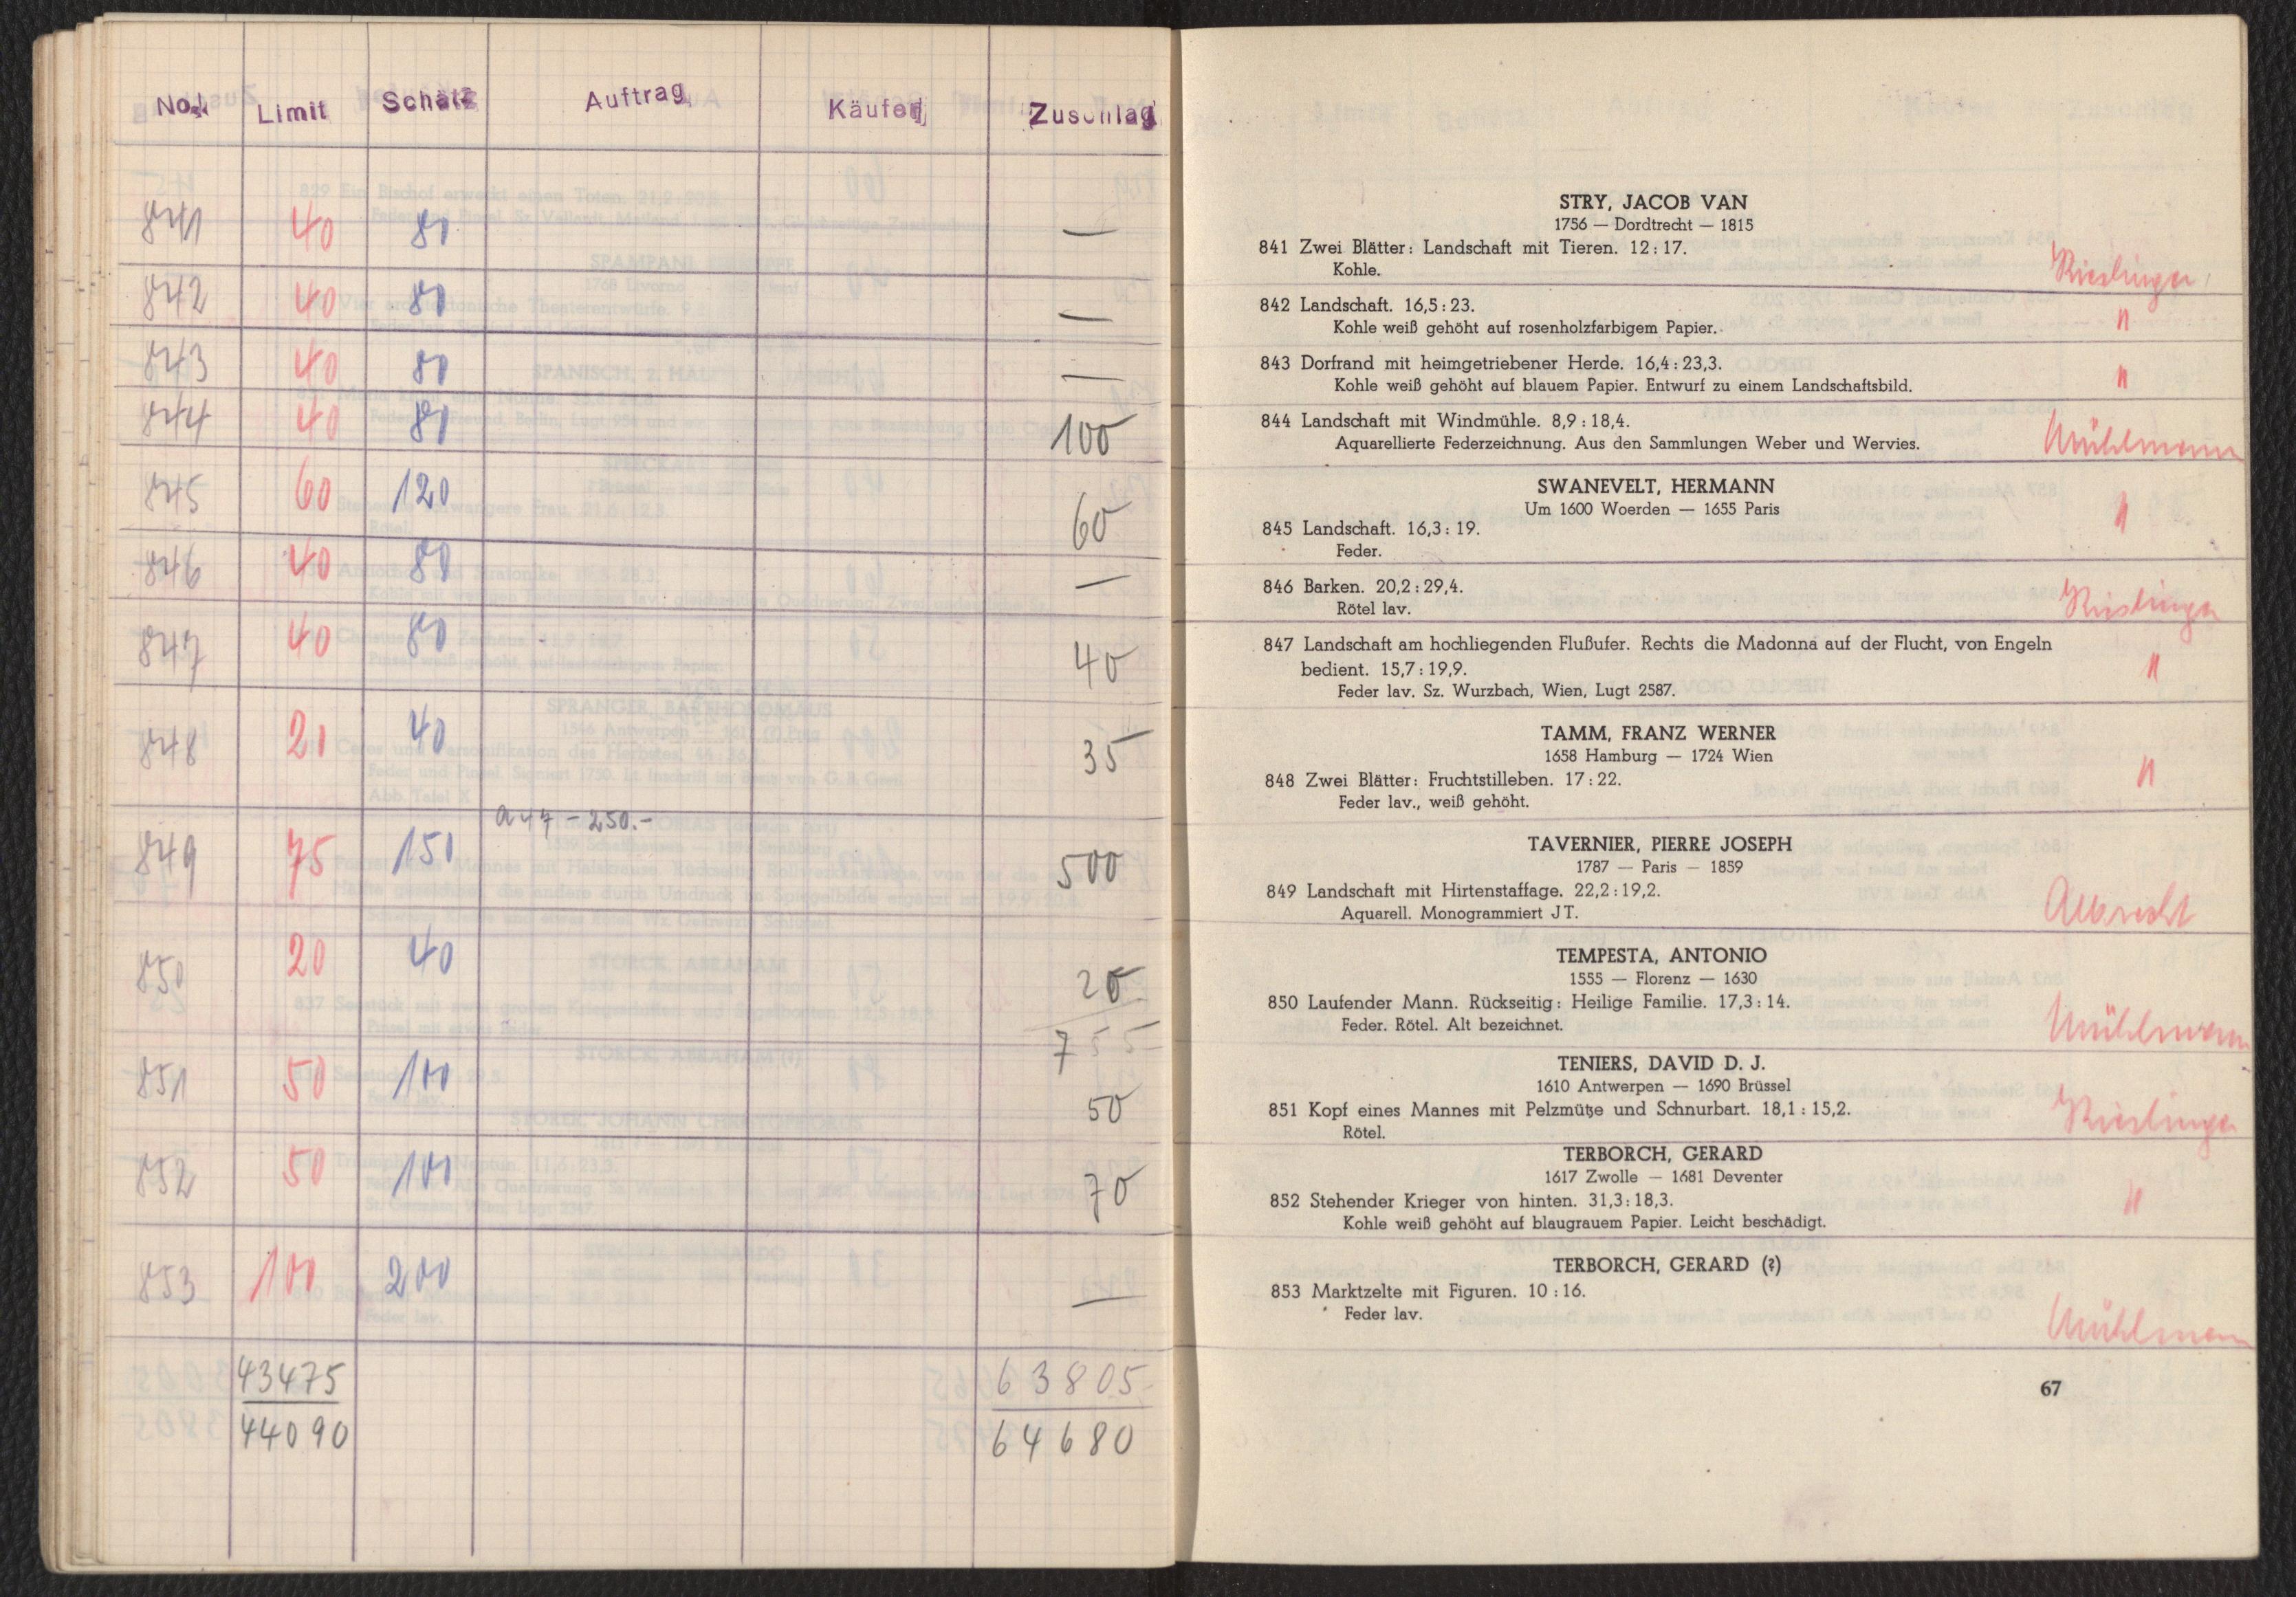 No. Limit Schätz Auftrag Käufer Zuschlag
841 40 80 —
842 40 80 —
843 40 80 —
844 40 80 100
845 60 120 60
846 40 80 —
847 40 80 40
848 20 40 35
a 47 – 250.–
849 75 150 500
850 20 40 20
755
851 50 100 50
852 50 100 70
853 100 200 —
43475 63805
44090 64680
STRY, JACOB VAN
1756 — Dordtrecht — 1815
841 Zwei Blätter: Landschaft mit Tieren. 12:17.
Kohle. Rieslinger
842 Landschaft. 16,5:23.
Kohle weiß gehöht auf rosenholzfarbigem Papier. "
843 Dorfrand mit heimgetriebener Herde. 16,4:23,3. "
Kohle weiß gehöht auf blauem Papier. Entwurf zu einem Landschaftsbild.
844 Landschaft mit Windmühle. 8,9:18,4.
Aquarellierte Federzeichnung. Aus den Sammlungen Weber und Wervies. Mühlmann
SWANEVELT, HERMANN
Um 1600 Woerden — 1655 Paris "
845 Landschaft. 16,3:19.
Feder.
846 Barken. 20,2:29,4.
Rötel lav. Rieslinger
847 Landschaft am hochliegenden Flußufer. Rechts die Madonna auf der Flucht, von Engeln
bedient. 15,7:19,9. "
Feder lav. Sz. Wurzbach, Wien, Lugt 2587.
TAMM, FRANZ WERNER
1658 Hamburg — 1724 Wien
848 Zwei Blätter: Fruchtstilleben. 17:22. "
Feder lav., weiß gehöht.
TAVERNIER, PIERRE JOSEPH
1787 — Paris — 1859
849 Landschaft mit Hirtenstaffage. 22,2:19,2.
Aquarell. Monogrammiert JT. Albrecht
TEMPESTA, ANTONIO
1555 — Florenz — 1630
850 Laufender Mann. Rückseitig: Heilige Familie. 17,3:14.
Feder. Rötel. Alt bezeichnet. Mühlmann
TENIERS, DAVID D. J.
1610 Antwerpen — 1690 Brüssel
851 Kopf eines Mannes mit Pelzmütze und Schnurbart. 18,1:15,2. Rieslinger
Rötel.
TERBORCH, GERARD
1617 Zwolle — 1681 Deventer
852 Stehender Krieger von hinten. 31,3:18,3. "
Kohle weiß gehöht auf blaugrauem Papier. Leicht beschädigt.
TERBORCH, GERARD (?)
853 Marktzelte mit Figuren. 10:16.
Feder lav. Mühlmann
67